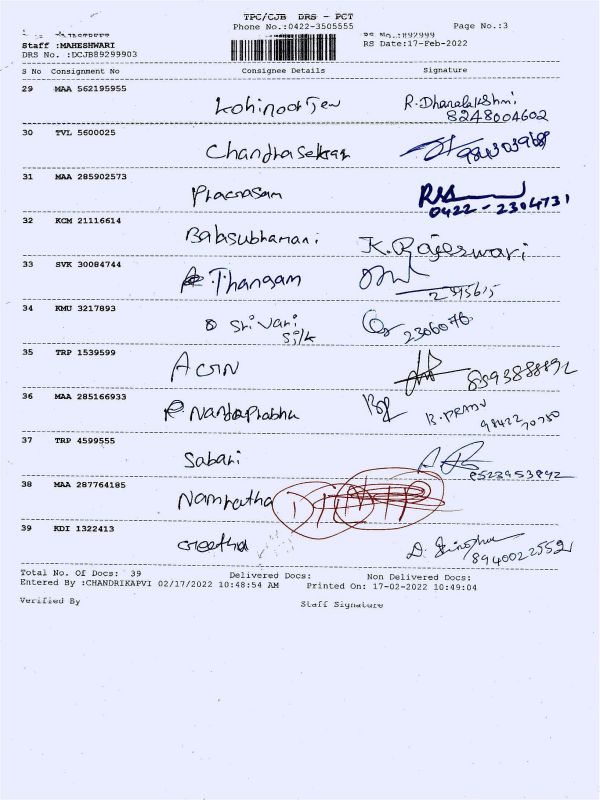 TPC/CJB DRS - PCT
Phone No.:0422-3505555 Page No.:3
Staff :MAHESHWARI RS Date:17-Feb-2022
DRS No. :DCJB89299903
S No Consignment No Consignee Details Signature
29 MAA 562195955 Kohinoor Jew R. Dhanalakshmi
8248004602
30 TVL 5600025 Chandrasekar
31 MAA 285902573 Pracrasam
0422-2304731
32 KCM 21116614 Balasubramani K. Rajeswari
33 SVK 30084744 Thangam
2395615
34 KMU 3217893 Sri Vari 2306076
Silk
35 TRP 1539599 ACON 8893888892
36 MAA 285166933 Nandaprabhu B. PRABU
98422 70780
37 TRP 4599555 Sabari
38 MAA 287764185 Namratha
39 KDI 1322413 Geetha
8940022552
Total No. Of Docs: 39 Delivered Docs: Non Delivered Docs:
Entered By :CHANDRIKAPVI 02/17/2022 10:48:54 AM Printed On: 17-02-2022 10:49:04
Verified By Staff Signature